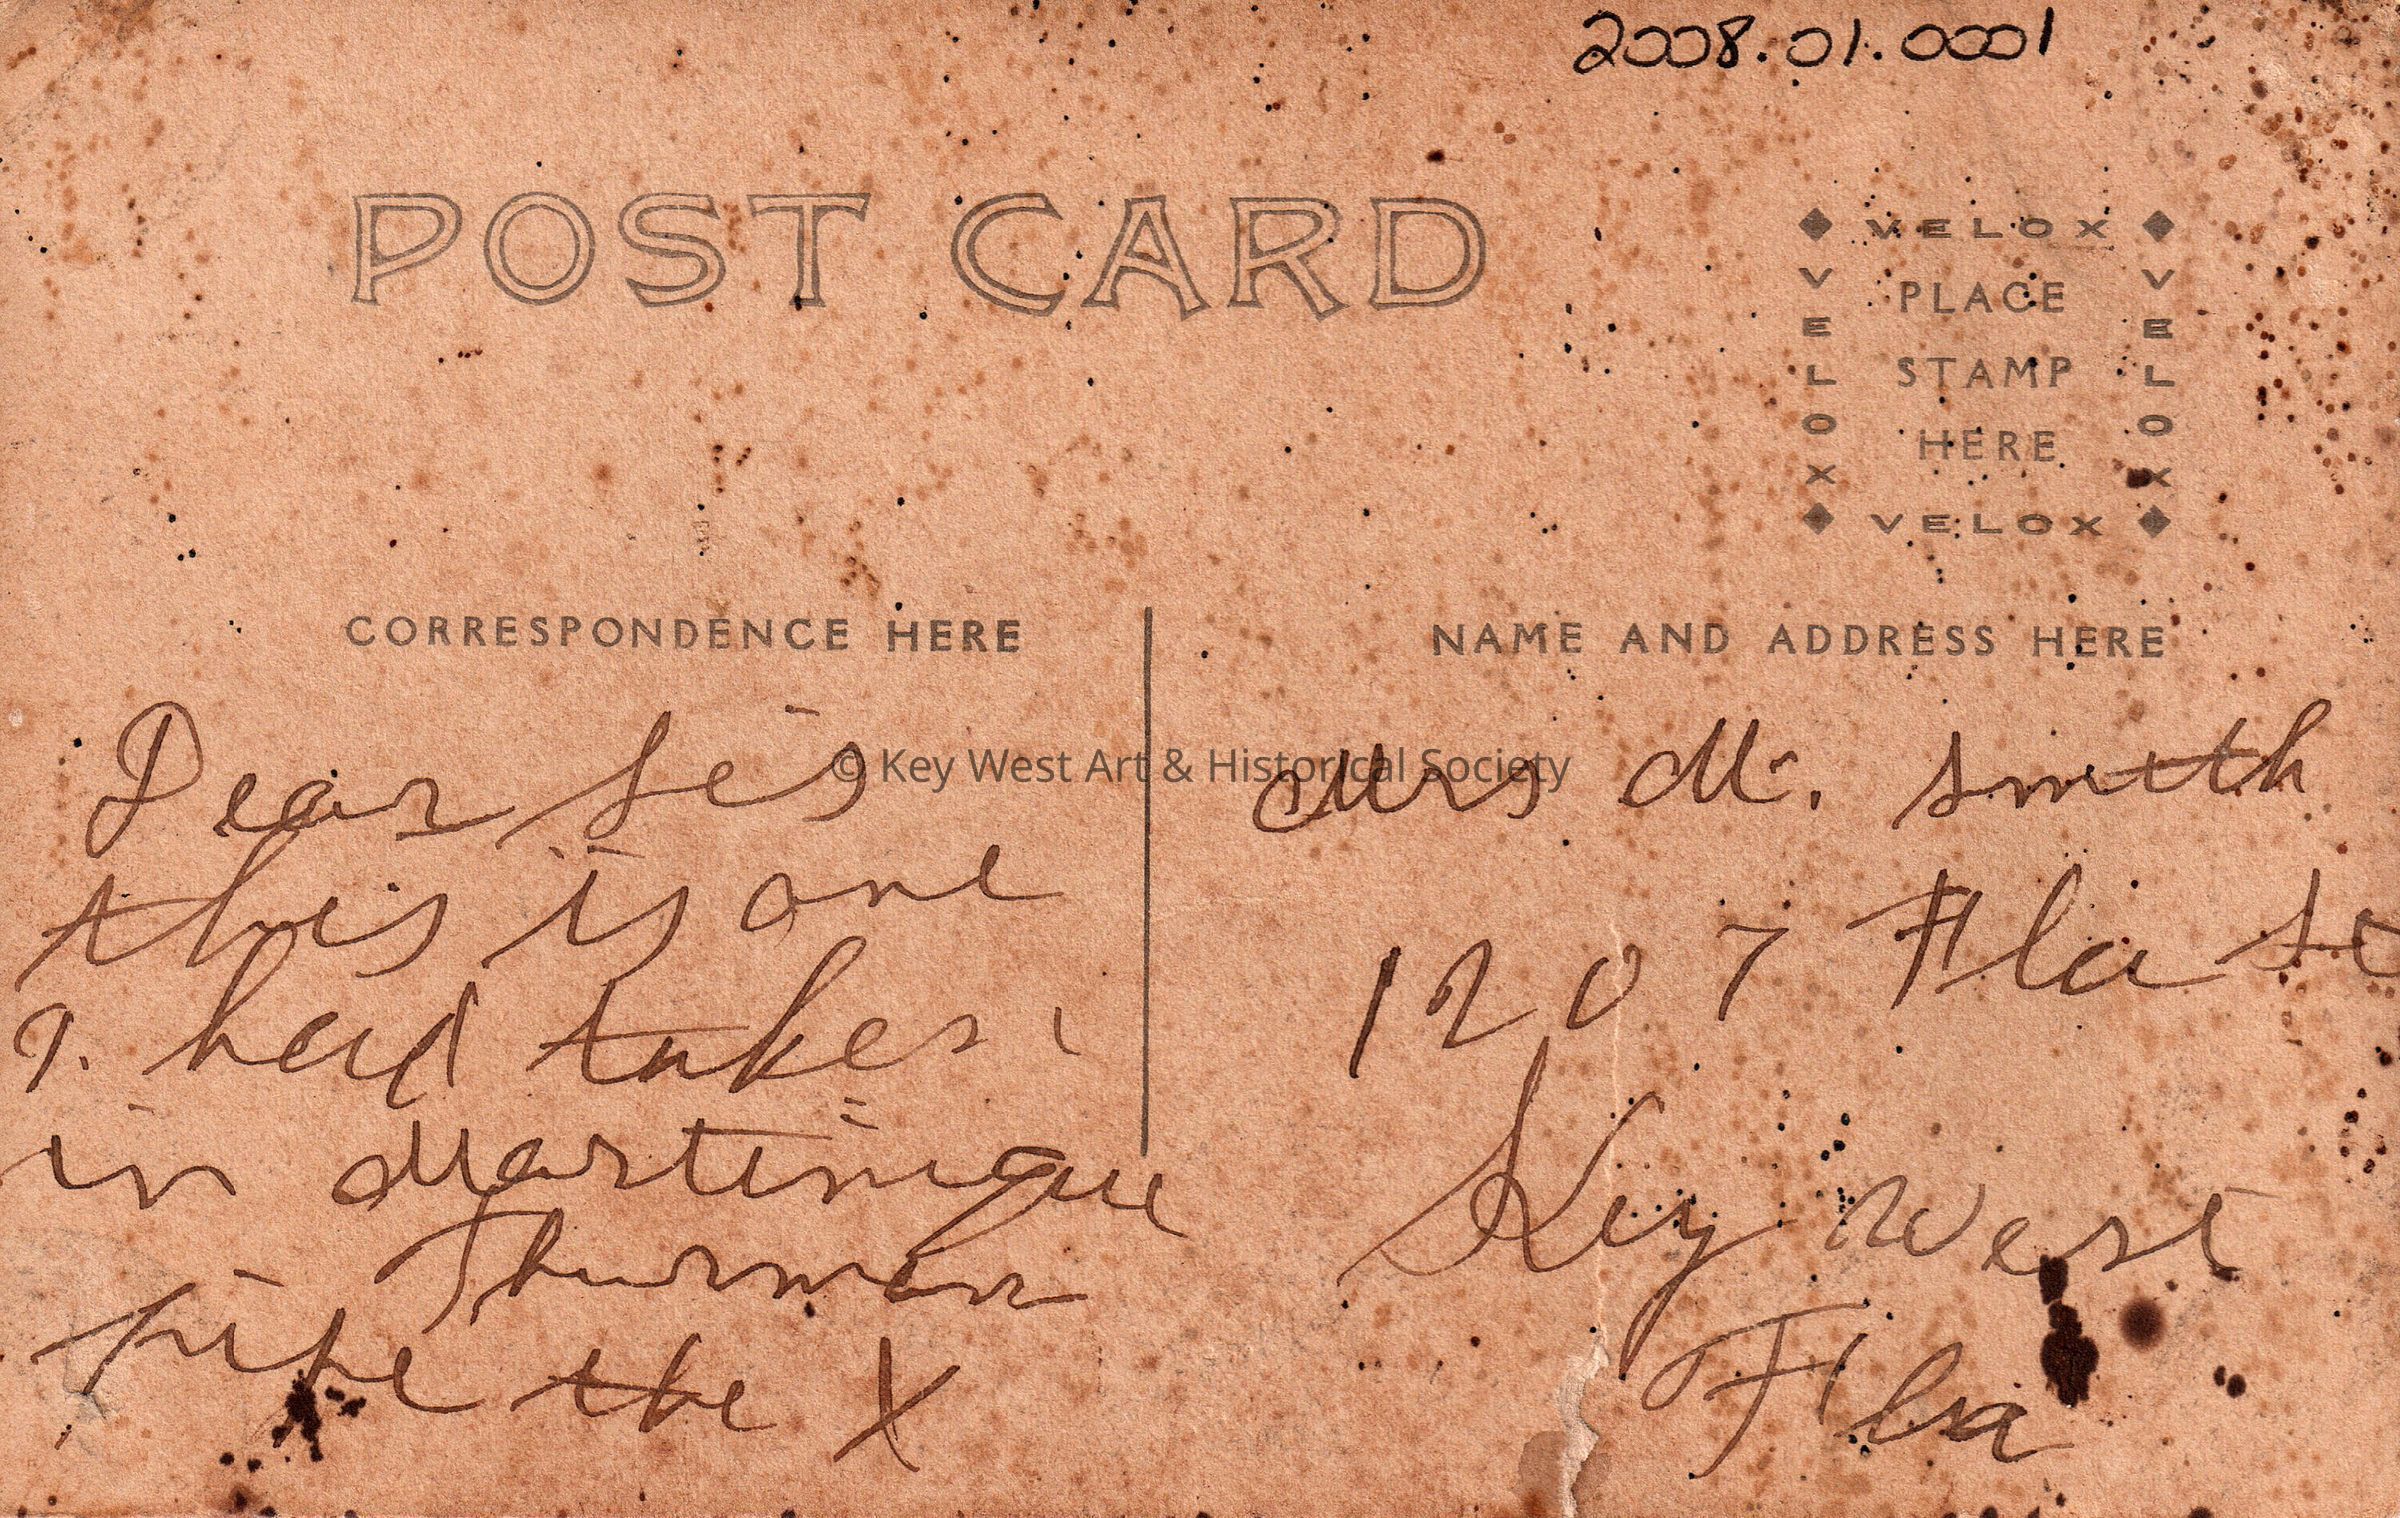 2008.01.0001
POST CARD
VELOX
VELOX
PLACE
STAMP
HERE
VELOX
VELOX
CORRESPONDENCE HERE
NAME AND ADDRESS HERE
Dear Sis
this is one
I. had taken
in Martinique
Thurman
the X
Mrs M. Smith
1207 Fla St
Key West
Fla
© Key West Art & Historical Society